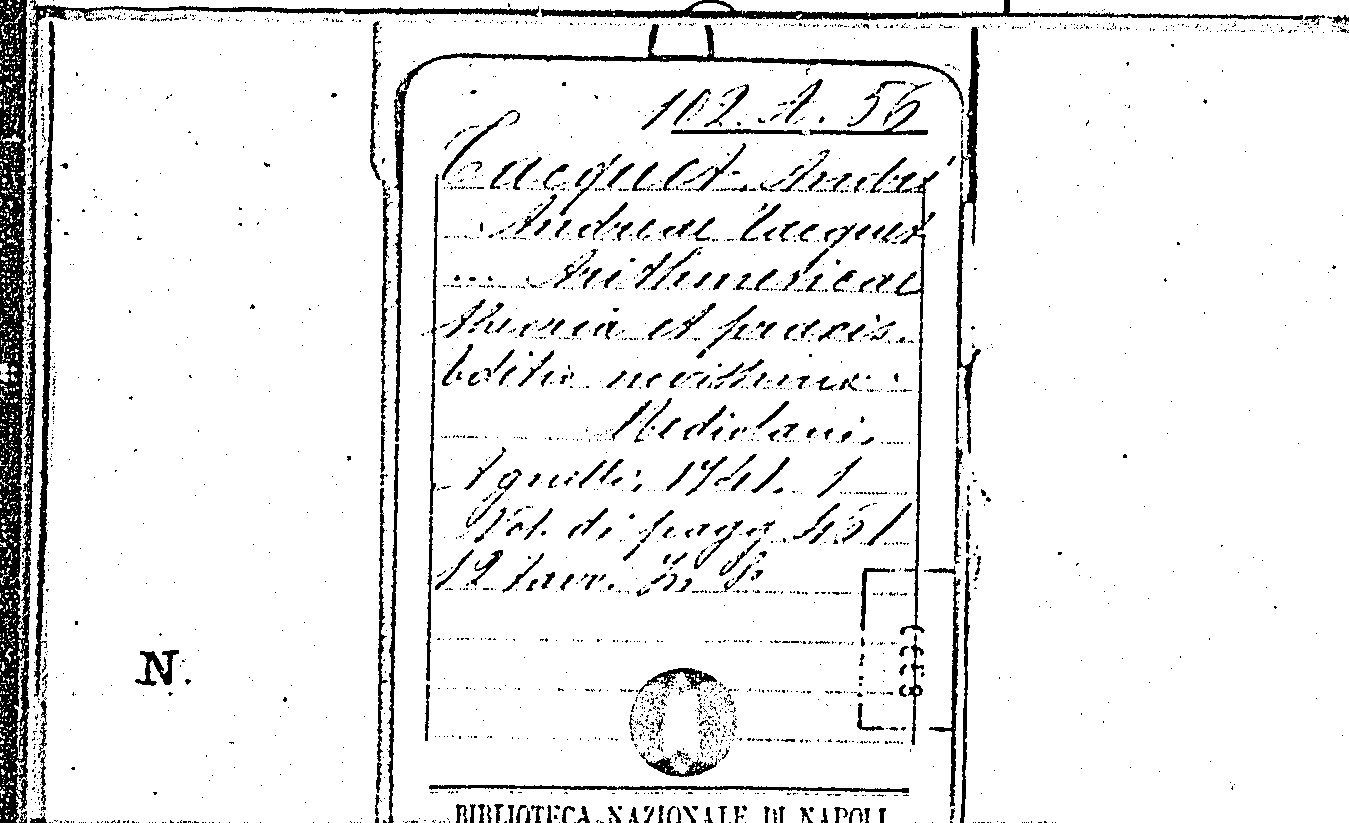 102. A. 56
Tacquet, André
Andreae Tacquet
... Arithmeticae
theoria et praxis.
Editio novissima.
Mediolani,
Agnelli, 1741. 1
Vol. di pagg 451
12 tavv. in 8
N.
BIBLIOTECA NAZIONALE DI NAPOLI